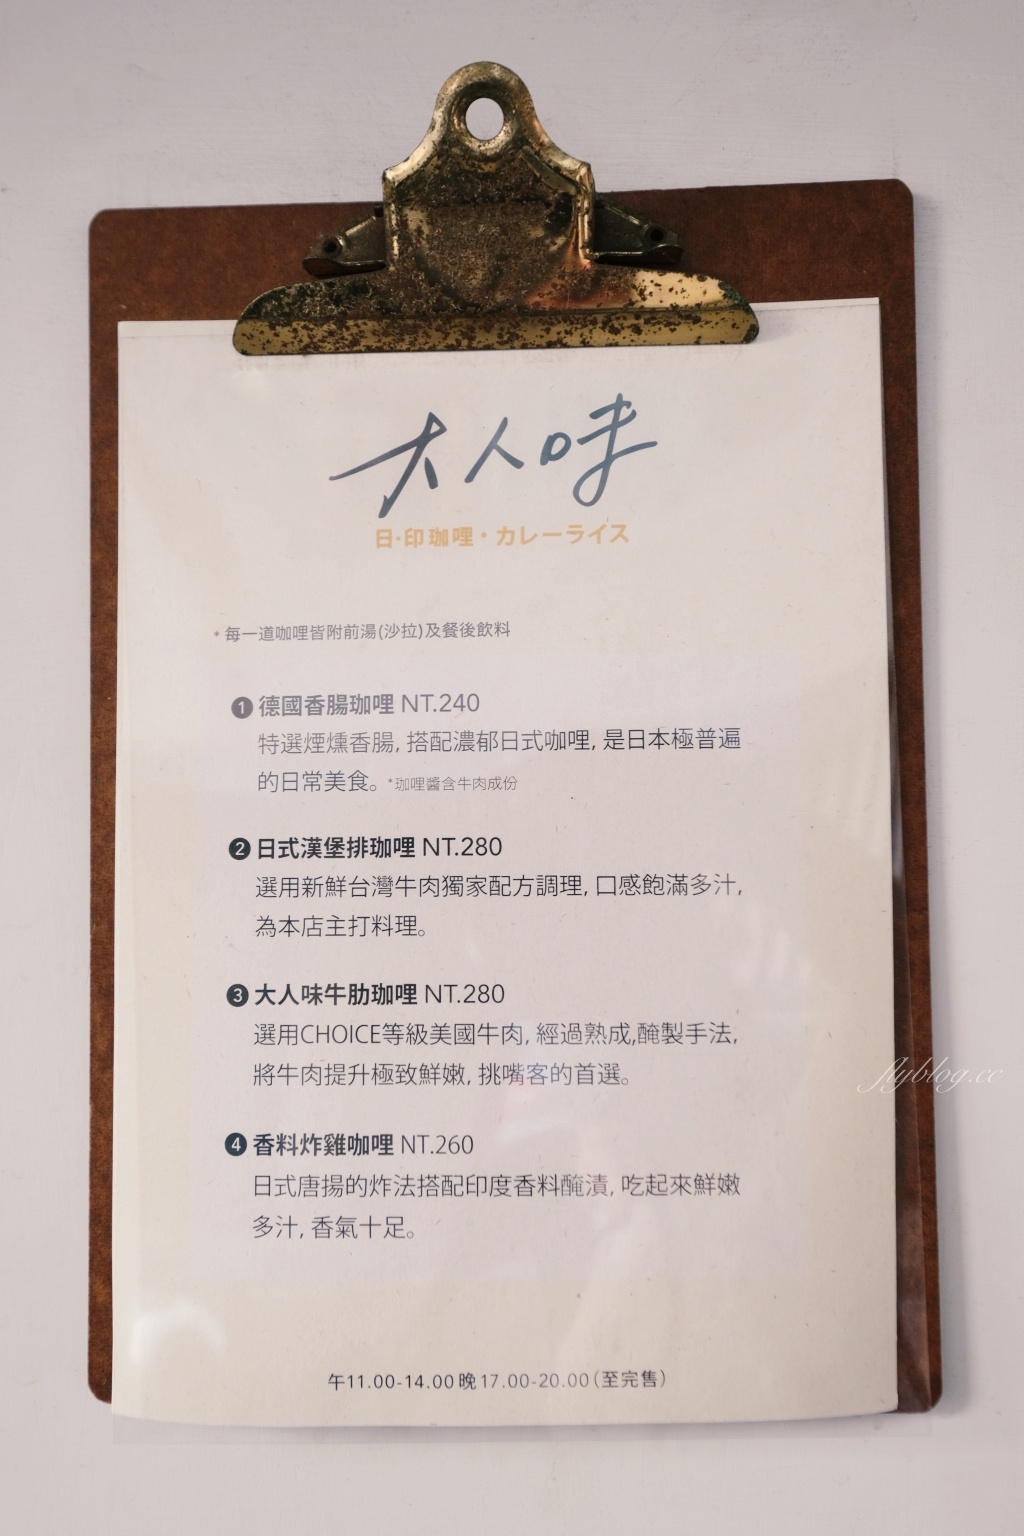 大人味
日·印珈哩·カレーライス
*每一道咖哩皆附前湯(沙拉)及餐後飲料
❶德國香腸珈哩 NT.240
特選煙燻香腸, 搭配濃郁日式咖哩, 是日本極普遍
的日常美食。*珈哩醬含牛肉成份
❷日式漢堡排珈哩 NT.280
選用新鮮台灣牛肉獨家配方調理, 口感飽滿多汁,
為本店主打料理。
❸大人味牛肋珈哩 NT.280
選用CHOICE等級美國牛肉, 經過熟成,醃製手法,
將牛肉提升極致鮮嫩, 挑嘴客的首選。
❹香料炸雞咖哩 NT.260
日式唐揚的炸法搭配印度香料醃漬, 吃起來鮮嫩
多汁, 香氣十足。
午11.00-14.00 晚17.00-20.00(至完售)
flyblog.cc